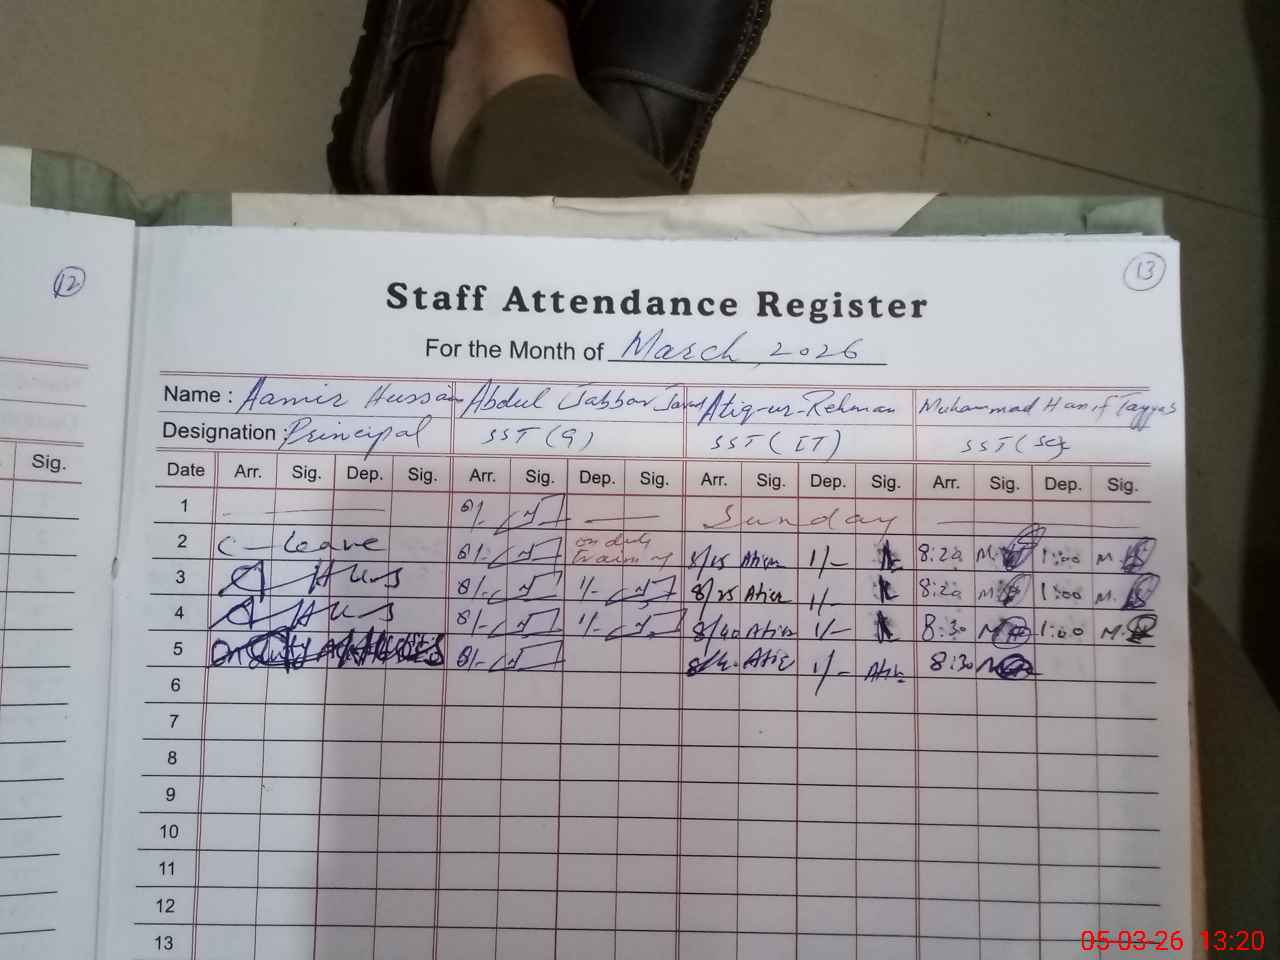 12
13
Staff Attendance Register
For the Month of March, 2026
Name : Aamir Hussain Abdul Jabbar Javed Atiq-ur-Rehman Muhammad Hanif Tayyab
Designation : Principal SST (G) SST (IT) SST (Sc)
Sig. Date Arr. Sig. Dep. Sig. Arr. Sig. Dep. Sig. Arr. Sig. Dep. Sig. Arr. Sig. Dep. Sig.
1 8/- Sunday
2 C-Leave 8/- on duty training 8/15 Atiq 1/- 8:20 M. 1:00 M.
3 8/- 1/- 8/25 Atiq 1/- 8:20 M. 1:00 M.
4 8/- 1/- 8/40 Atiq 1/- 8:30 M. 1:00 M.
5 on duty 8/- Atiq 1/- Atiq 8:30
6
7
8
9
10
11
12
13
05-03-26 13:20